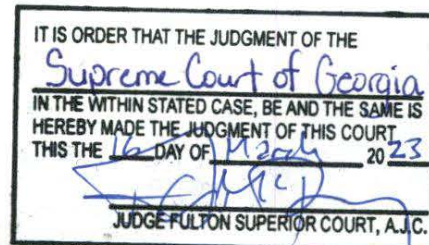 IT IS ORDER THAT THE JUDGMENT OF THE
Supreme Court of Georgia
IN THE WITHIN STATED CASE, BE AND THE SAME IS
HEREBY MADE THE JUDGMENT OF THIS COURT
THIS THE 16 DAY OF March 2023
JUDGE FULTON SUPERIOR COURT, A.J.C.